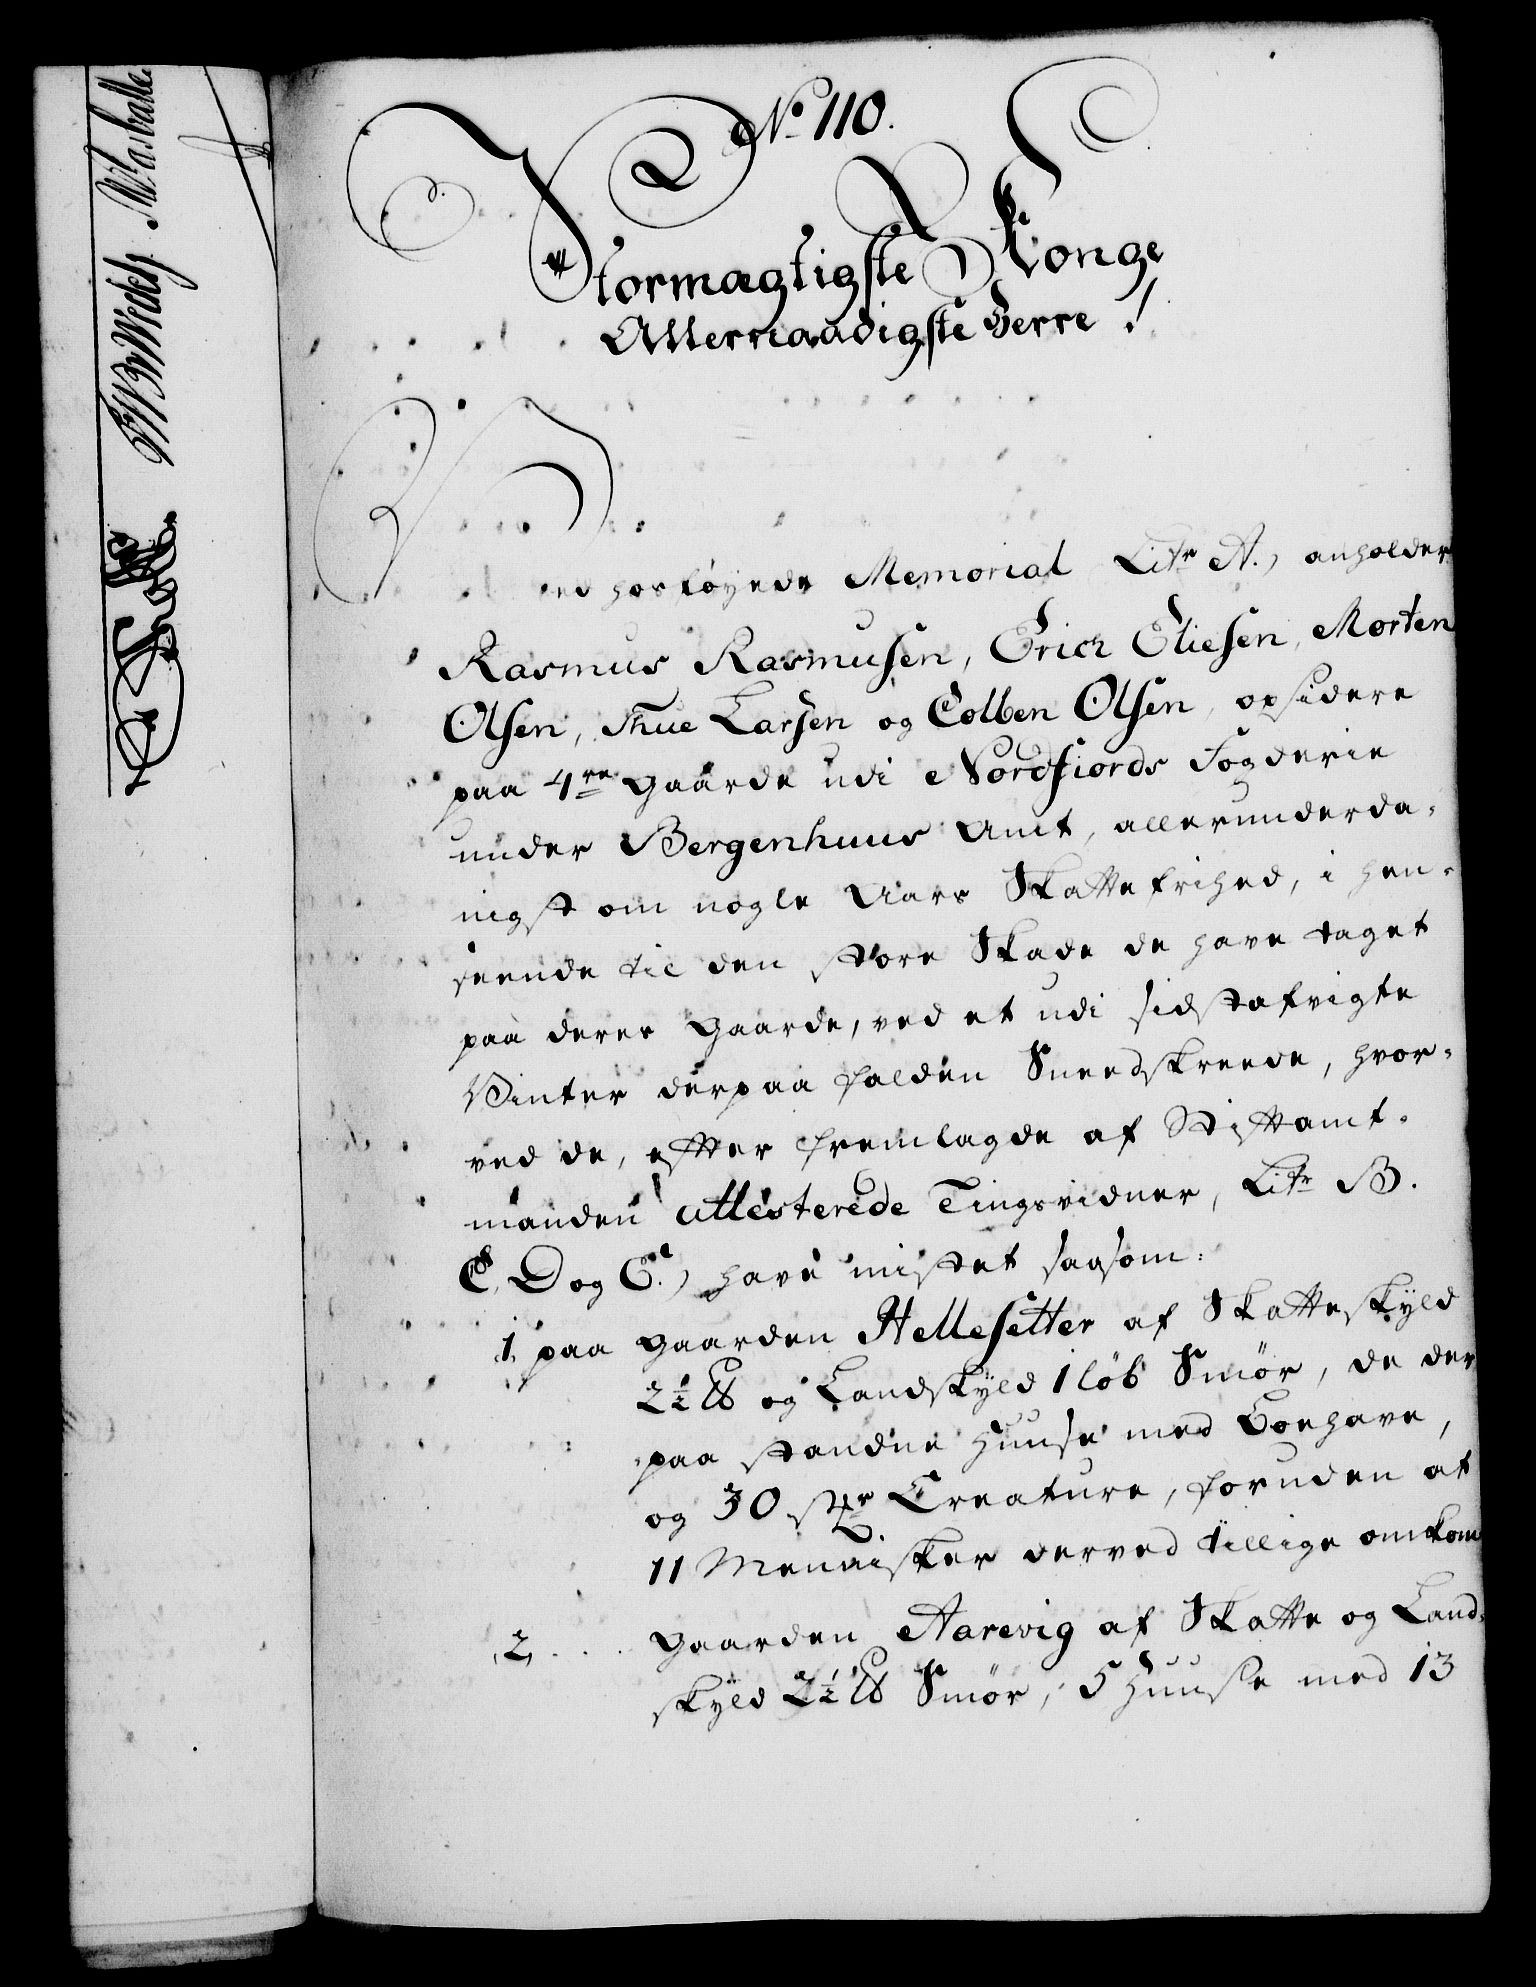 No 110.
Stormægtigste Konge
Allernaadigste Herre!
Ved hosføyede Memorial Litr A.) anholder
Rasmus Rasmusen, Erich Eliesen, Morten
Olsen, Thue Larsen og Colben Olsen, opsidere
paa 4re gaarde udi Nordfiords Fogderie
under Bergenhuus Amt, allerunderda-
nigst om nogle Aars Skattefrihed, i hen-
seende til den store Skade de have taget
paa deres gaarde, ved et udi sidstafvigte
Vinter derpaa falden Sneedskreede, hvor-
ved de, efter fremlagde af Stiftamt-
manden attesterede Tingsvidner, Litr B.
C, D og E.) have mistet saasom:
1, paa gaarden Hellesetter af Skatteskyld
2½ ℔ og Landskyld 1 løb Smør, de der
paa standne Huuse med Boehave,
og 30 stkr Creature, foruden at
11 Mennisker derved tillige omkom
2, . . . gaarden Aarevig af Skatte og Land-
skyld 2½ ℔ Smør, 5 Huuse med 13